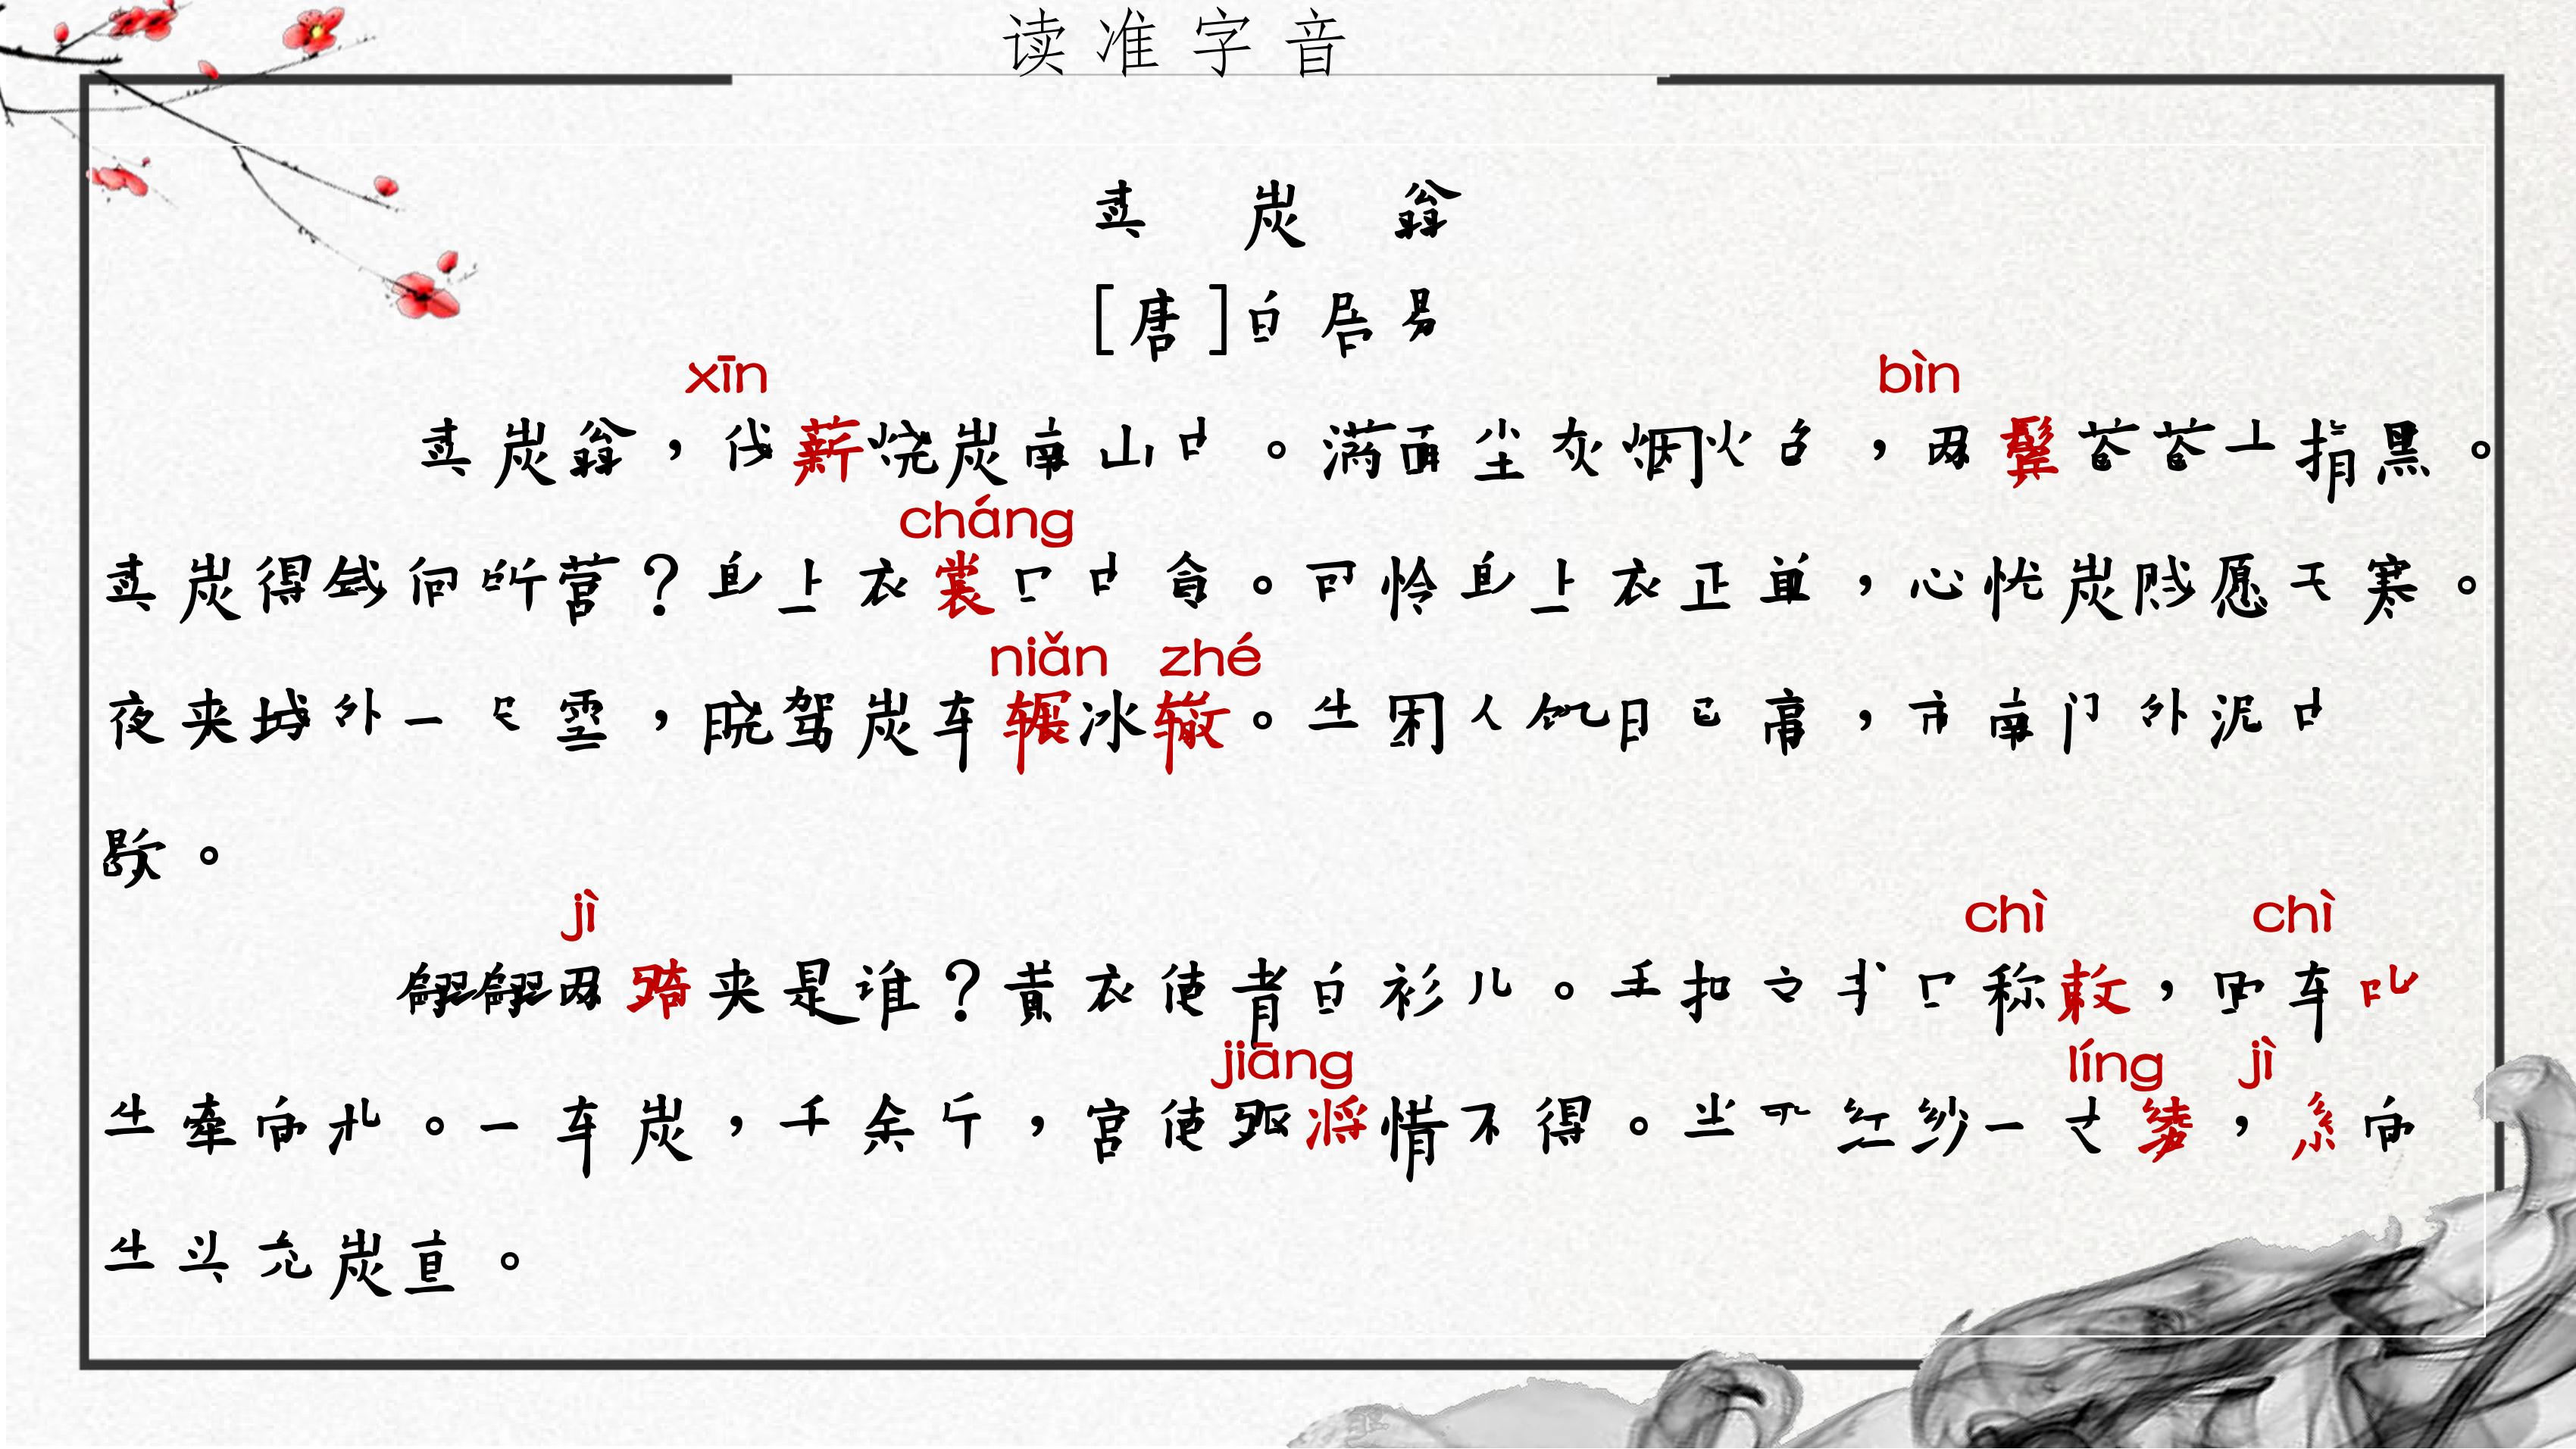 读准字音
卖炭翁
[唐]白居易
xīn bìn
卖炭翁，伐薪烧炭南山中。满面尘灰烟火色，两鬓苍苍十指黑。
cháng
卖炭得钱何所营？身上衣裳口中食。可怜身上衣正单，心忧炭贱愿天寒。
niǎn zhé
夜来城外一尺雪，晓驾炭车辗冰辙。牛困人饥日已高，市南门外泥中
歇。
jì chì chì
翩翩两骑来是谁？黄衣使者白衫儿。手把文书口称敕，回车叱
jiāng líng jì
牛牵向北。一车炭，千余斤，宫使驱将惜不得。半匹红纱一丈绫，系向
牛头充炭直。